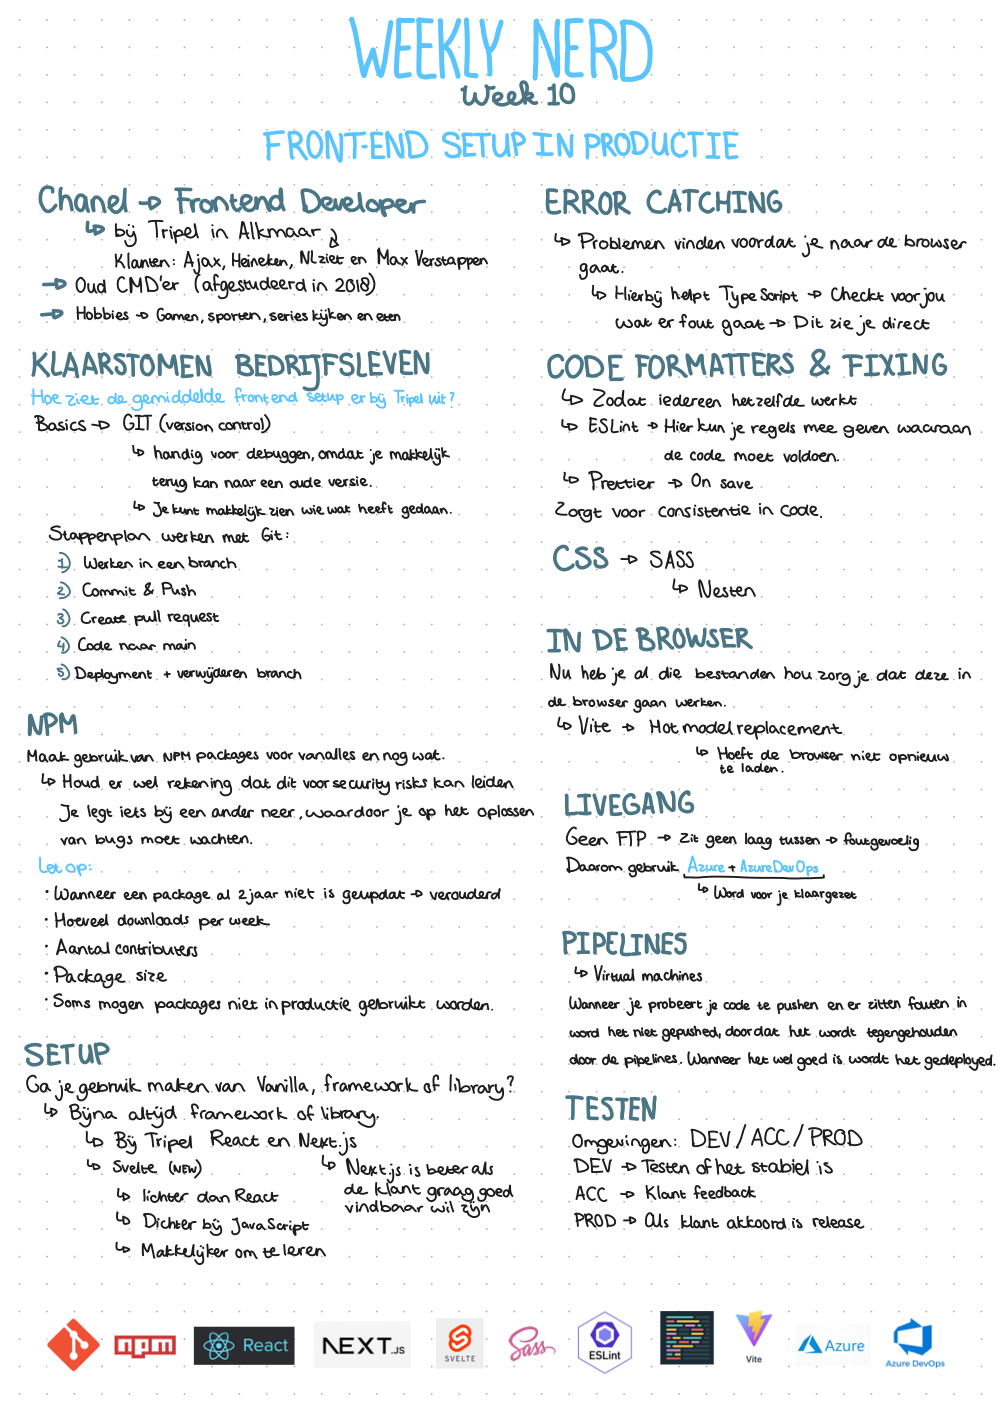 WEEKLY NERD
Week 10
FRONT-END SETUP IN PRODUCTIE
Chanel → Frontend Developer
↳ bij Tripel in Alkmaar
Klanten: Ajax, Heineken, NLziet en Max Verstappen
→ Oud CMD'er (afgestudeerd in 2018)
→ Hobbies → Gamen, sporten, series kijken en eten
KLAARSTOMEN BEDRIJFSLEVEN
Hoe ziet de gemiddelde frontend setup er bij Tripel uit?
Basics → GIT (version control)
↳ handig voor debuggen, omdat je makkelijk
terug kan naar een oude versie.
↳ Je kunt makkelijk zien wie wat heeft gedaan.
Stappenplan werken met Git:
1) Werken in een branch
2) Commit & Push
3) Create pull request
4) Code naar main
5) Deployment + verwijderen branch
NPM
Maak gebruik van NPM packages voor vanalles en nog wat.
↳ Houd er wel rekening dat dit voor security risks kan leiden
Je legt iets bij een ander neer, waardoor je op het oplossen
van bugs moet wachten.
Let op:
· Wanneer een package al 2 jaar niet is geupdat → verouderd
· Hoeveel downloads per week
· Aantal contributers
· Package size
· Soms mogen packages niet in productie gebruikt worden.
SETUP
Ga je gebruik maken van Vanilla, framework of library?
↳ Bijna altijd framework of library.
↳ Bij Tripel React en Next.js
↳ Next.js is beter als
de klant graag goed
vindbaar wil zijn
↳ Svelte (NEW)
↳ lichter dan React
↳ Dichter bij JavaScript
↳ Makkelijker om te leren
ERROR CATCHING
↳ Problemen vinden voordat je naar de browser
gaat.
↳ Hierbij helpt TypeScript → Checkt voor jou
wat er fout gaat → Dit zie je direct
CODE FORMATTERS & FIXING
↳ Zodat iedereen hetzelfde werkt
↳ ESLint → Hier kun je regels mee geven waaraan
de code moet voldoen.
↳ Prettier → On save
Zorgt voor consistentie in code.
CSS → SASS
↳ Nesten
IN DE BROWSER
Nu heb je al die bestanden hou zorg je dat deze in
de browser gaan werken.
↳ Vite → Hot model replacement
↳ Hoeft de browser niet opnieuw
te laden.
LIVEGANG
Geen FTP → Zit geen laag tussen → foutgevoelig
Daarom gebruik Azure + AzureDevOps
↳ Word voor je klaargezet
PIPELINES
↳ Virtual machines
Wanneer je probeert je code te pushen en er zitten fouten in
word het niet gepushed, doordat het wordt tegengehouden
door de pipelines. Wanneer het wel goed is wordt het gedeployed.
TESTEN
Omgevingen: DEV / ACC / PROD
DEV → Testen of het stabiel is
ACC → Klant feedback
PROD → Als klant akkoord is release
npm
React
NEXT.JS
SVELTE
Sass
ESLint
Vite
Azure
Azure DevOps